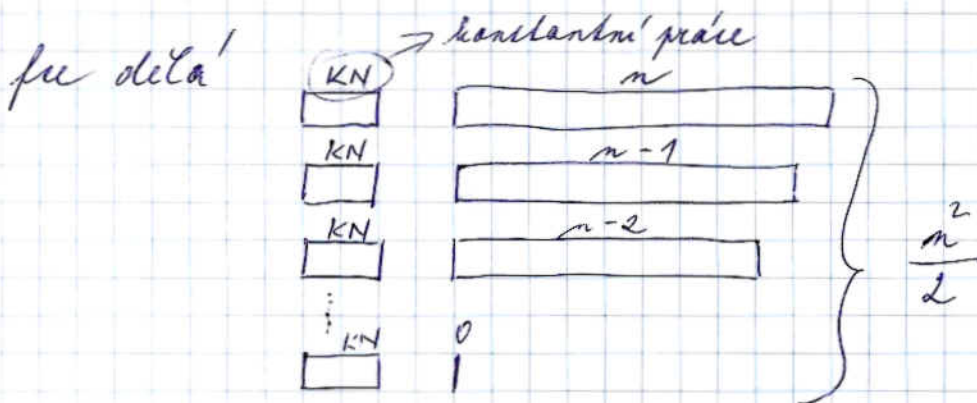 fce dělá
KN → konstantní práce
n
KN
n-1
KN
n-2
KN
0
n²
2